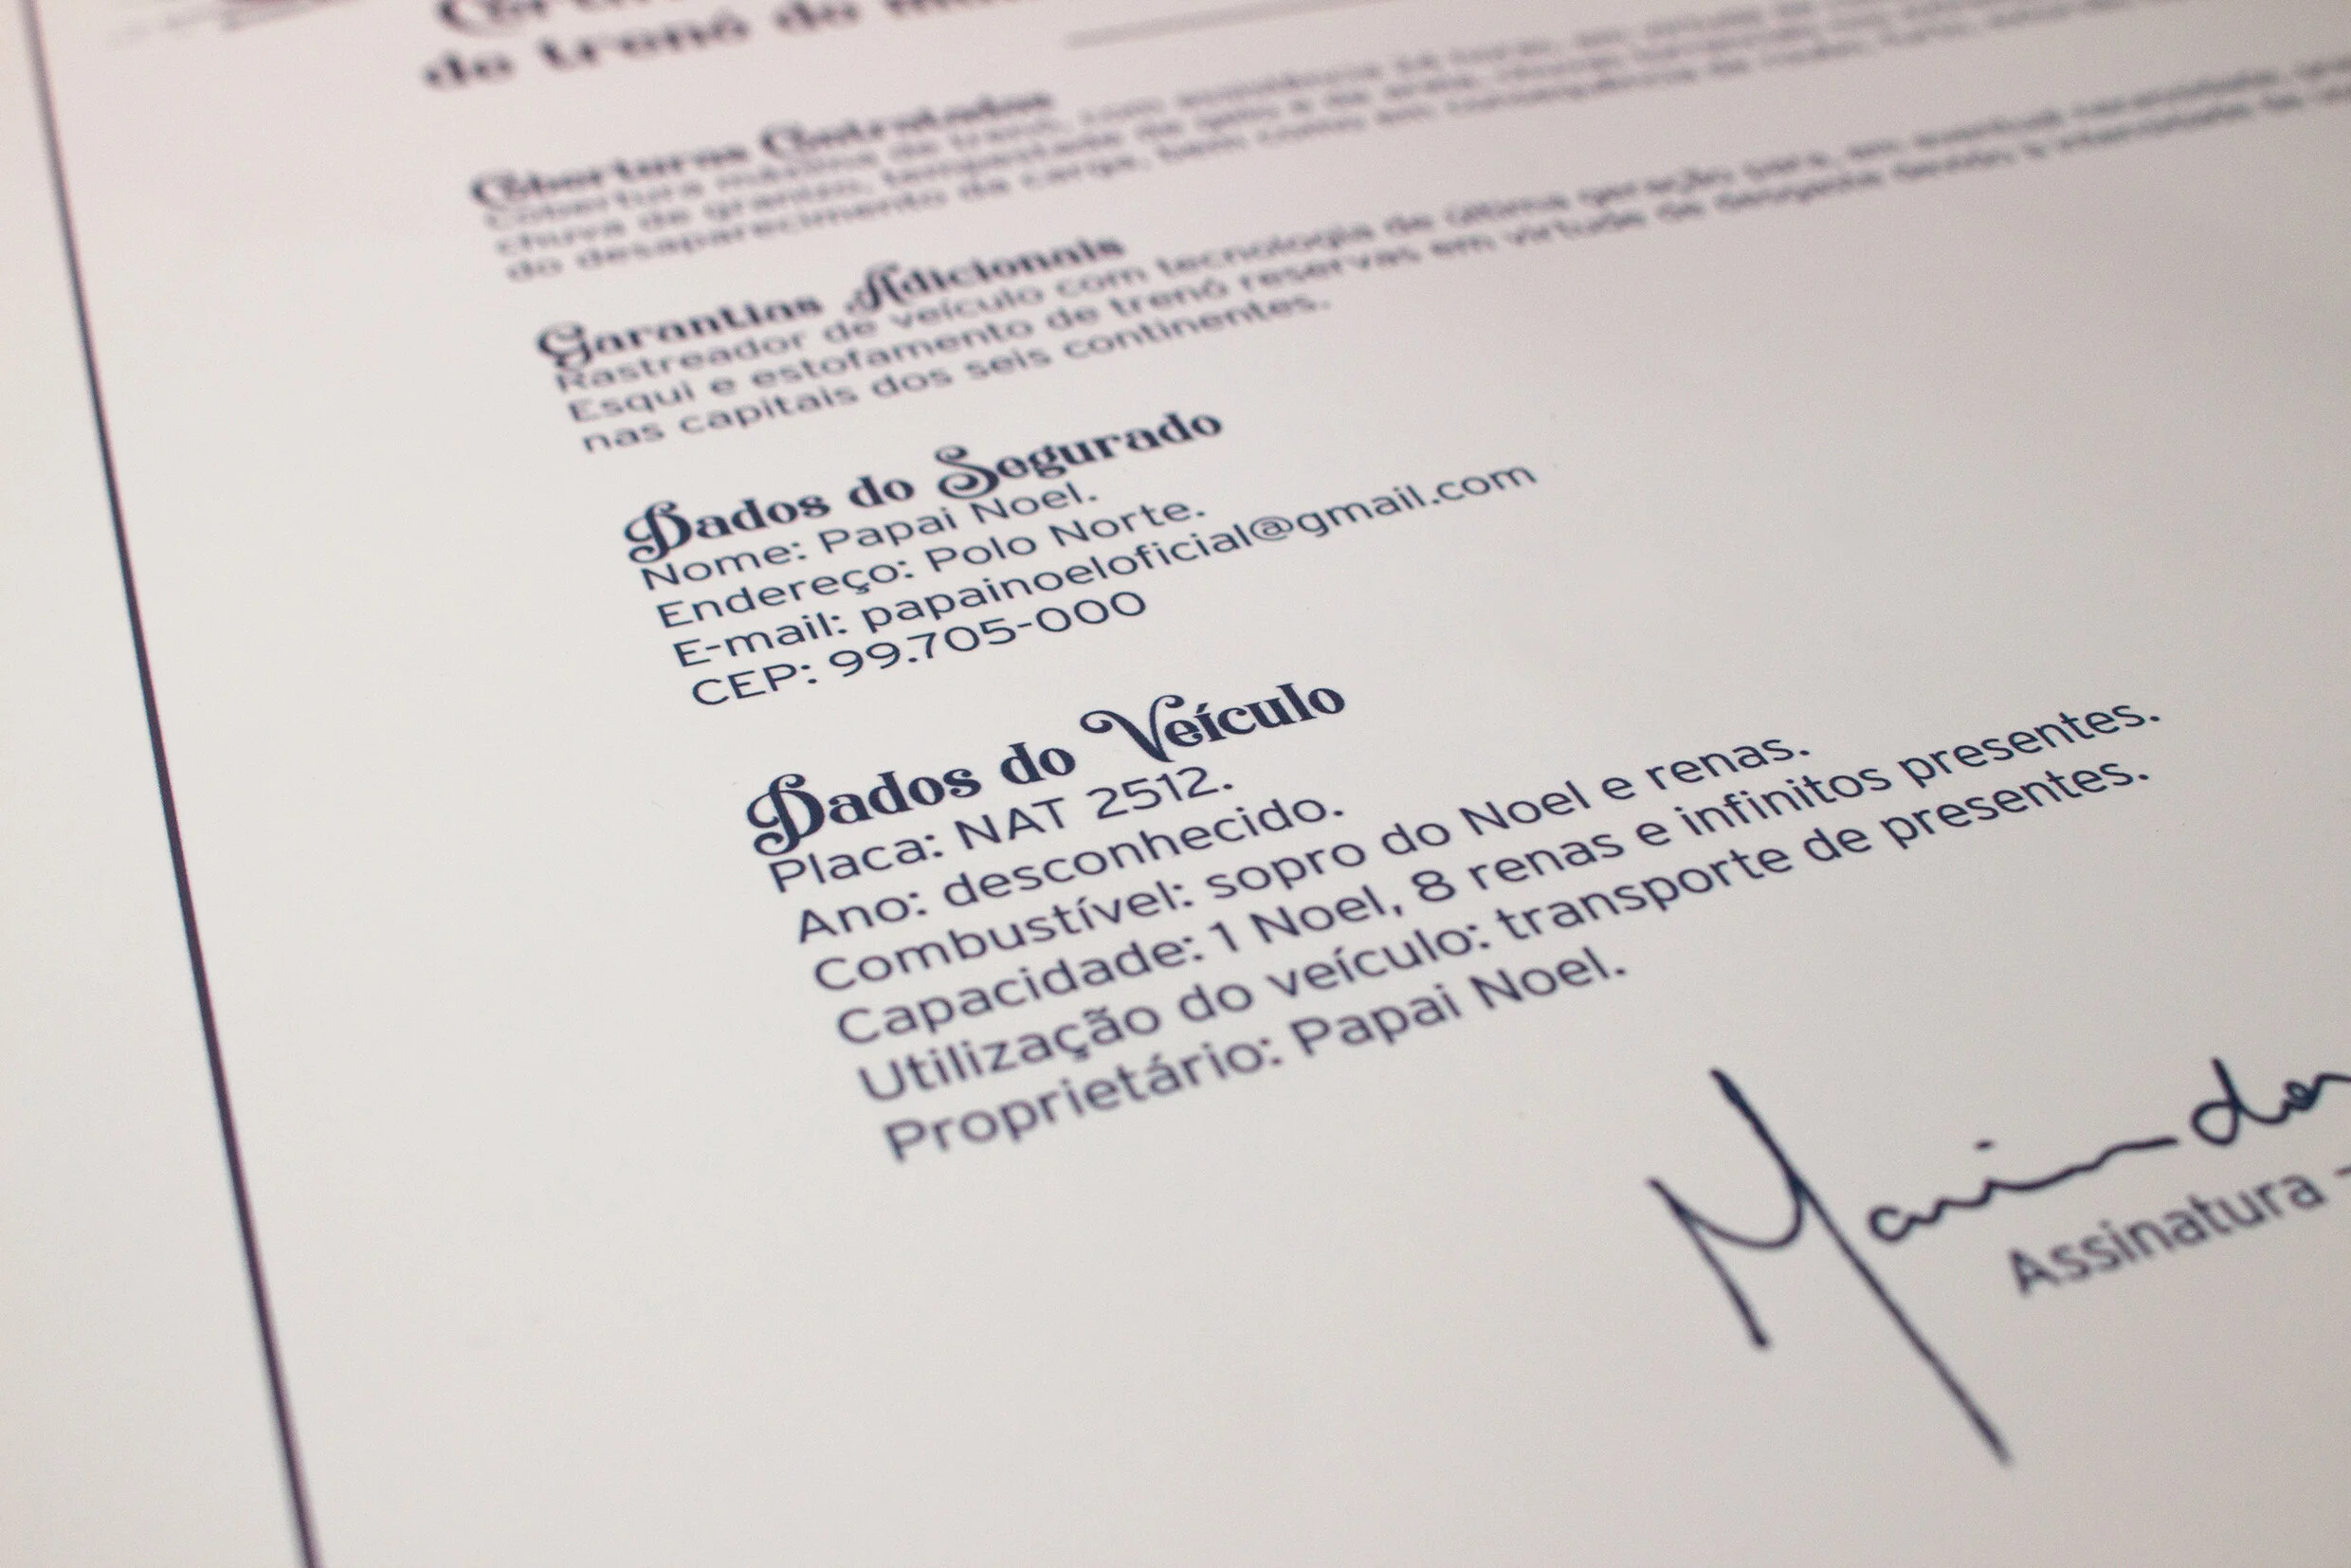 do trenó do
Coberturas Contratadas
Cobertura máxima do trenó, com assistência 24 horas, em
chuva de granizo, tempestade de gelo e de areia,
do desaparecimento da carga, bem como em consequência de
Garantias Adicionais
Rastreador de veículo com tecnologia de última geração para, em eventual necessidade,
Esqui e estofamento de trenó reservas em virtude de desgaste devido à intensidade
nas capitais dos seis continentes.
Dados do Segurado
Nome: Papai Noel.
Endereço: Polo Norte.
E-mail: papainoeloficial@gmail.com
CEP: 99.705-000
Dados do Veículo
Placa: NAT 2512.
Ano: desconhecido.
Combustível: sopro do Noel e renas.
Capacidade: 1 Noel, 8 renas e infinitos presentes.
Utilização do veículo: transporte de presentes.
Proprietário: Papai Noel.
Assinatura -